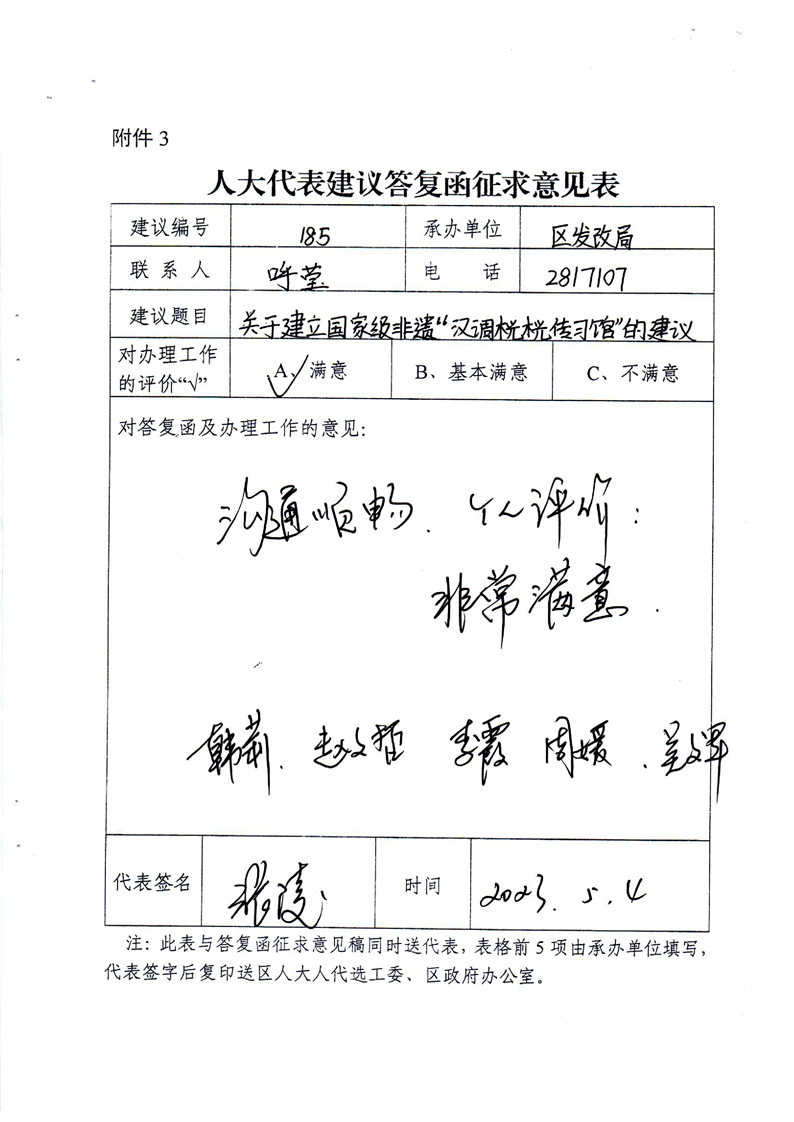 附件 3
人大代表建议答复函征求意见表
建议编号 185 承办单位 区发改局
联系人 呼莹 电话 2817107
建议题目 关于建立国家级非遗“汉调桄桄传习馆”的建议
对办理工作的评价“√” A、满意 √ B、基本满意 C、不满意
对答复函及办理工作的意见：
沟通顺留．个人评价：
非常满意．
韩莉．赵文哲 李霞 周媛．吴文军
代表签名 时间 2023．5．4
注：此表与答复函征求意见稿同时送代表，表格前 5 项由承办单位填写，
代表签字后复印送区人大人代选工委、区政府办公室。